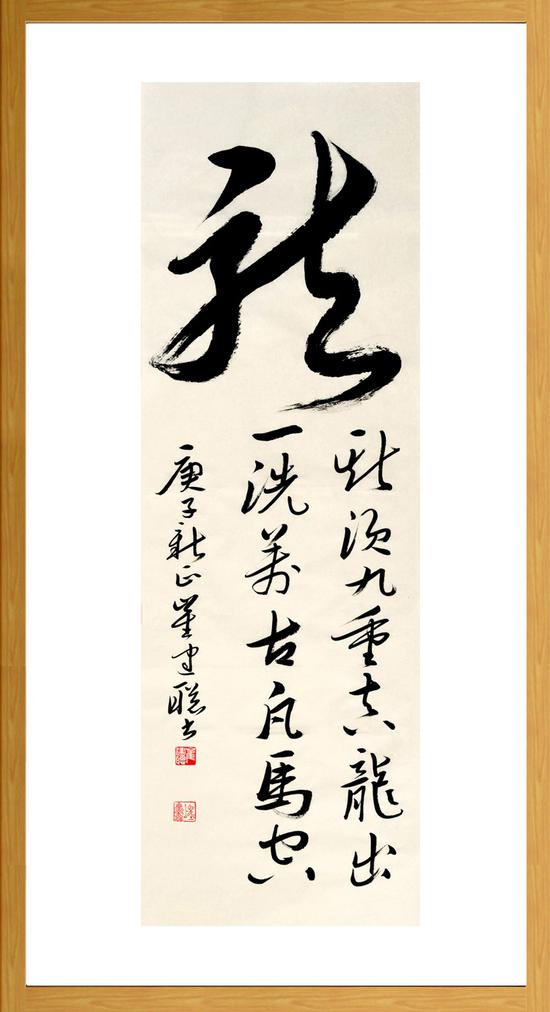 龍
斯須九重真龍出
一洗萬古凡馬空
庚子新正聪书